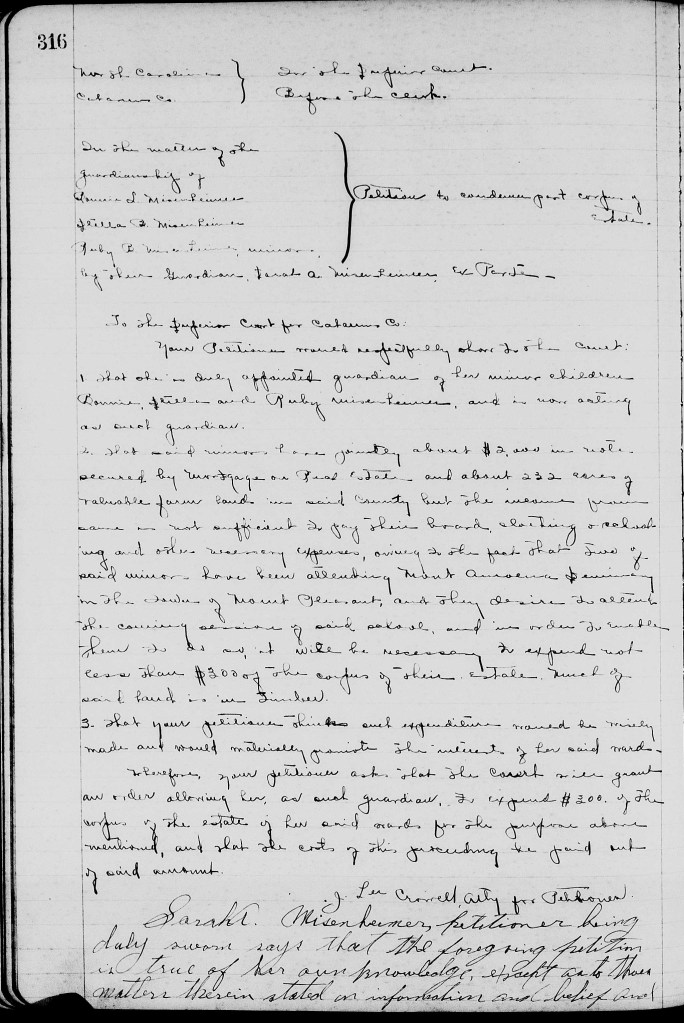 316
North Carolina } In the Superior Court.
Cabarrus Co. } Before the Clerk.
In the matter of the
guardianship of
Bonnie L. Misenheimer
Stella B. Misenheimer
Ruby B. Misenheimer, minors,
} Petition to condemn part corpus of
Estate.
by their Guardian, Sarah A. Misenheimer, Ex Parte
To the Superior Court for Cabarrus Co:
Your Petitioner would respectfully show to the Court:
1. That she is duly appointed guardian of her minor children
Bonnie, Stella and Ruby Misenheimer, and is now acting
as such guardian.
2. That said minors have jointly about $2,000 in notes
secured by mortgage on Real Estate and about 232 acres of
valuable farm lands in said County but the income from
same is not sufficient to pay their board, clothing & educat
ing and other necessary expenses, owing to the fact that two of
said minors have been attending Mont Amoena Seminary
in the town of Mount Pleasant, and they desire to attend
the coming session of said school, and in order to enable
them to do so, it will be necessary to expend not
less than $300 of the corpus of their estate. Much of
said land is in timber.
3. That your petitioner thinks such expenditure would be wisely
made and would materially promote the interests of her said wards.
Wherefore, your petitioner asks that the Court will grant
an order allowing her, as such guardian, to expend $300. of the
corpus of the estate of her said wards for the purpose above
mentioned, and that the costs of this proceeding be paid out
of said amount.
J. Lee Crowell, Atty for Petitioner.
Sarah A. Misenheimer, petitioner being
duly sworn says that the foregoing petition
is true of her own knowledge, except as to those
matters therein stated on information and belief and